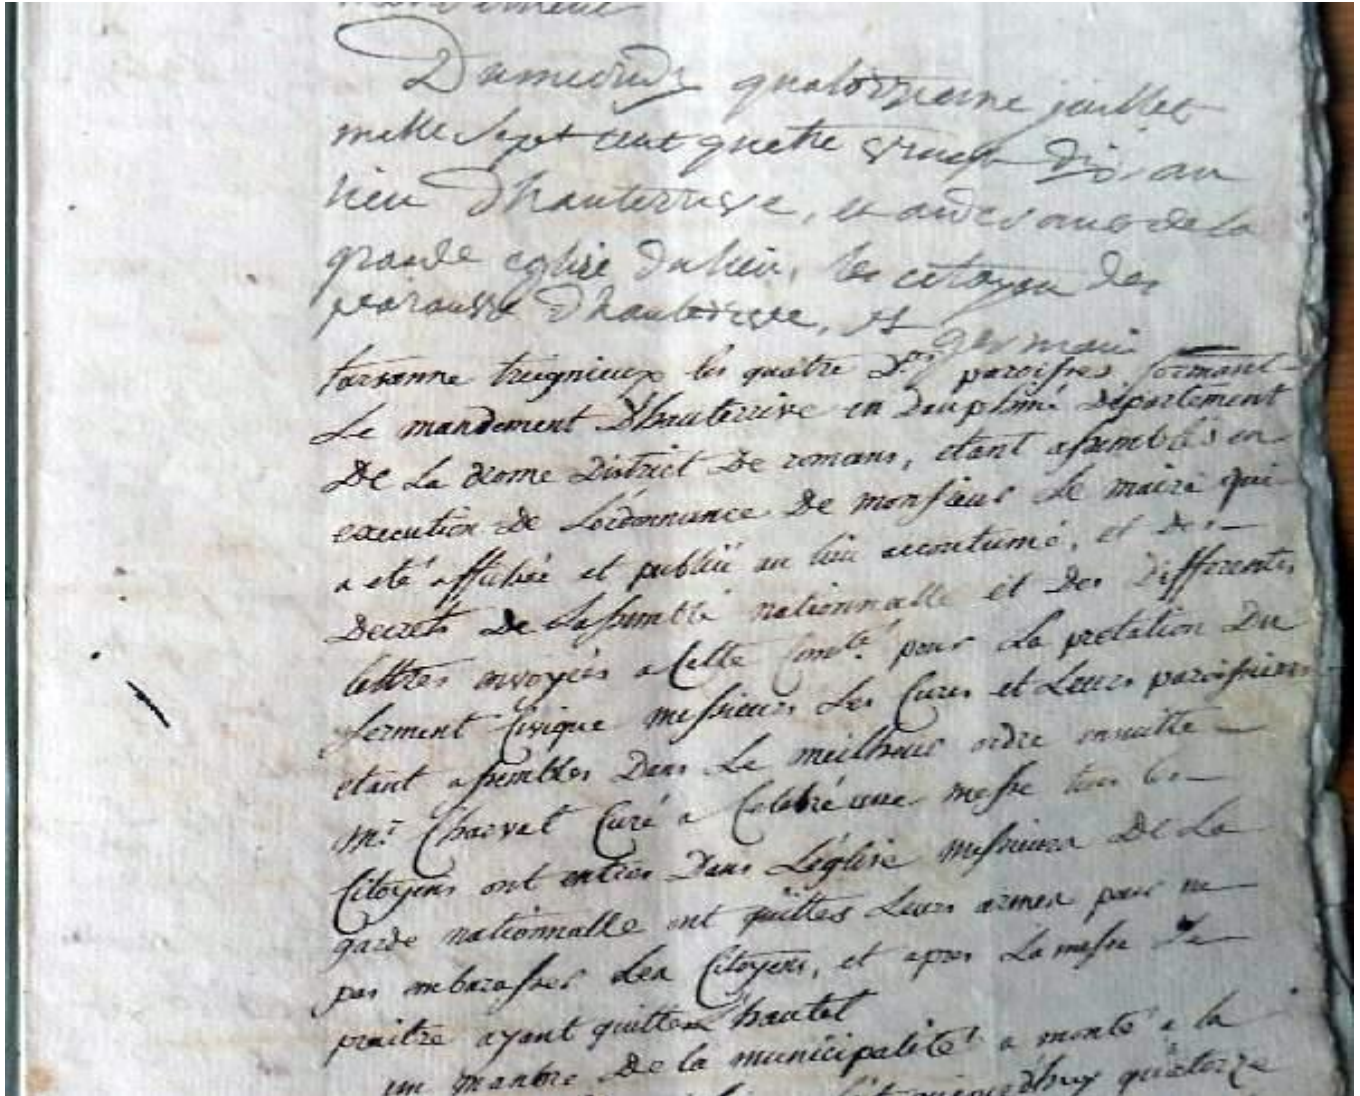 Du mecredy quatorzieme juillet
mille sept cent quatre vingt dix au
lieu Dhauterive, et de la
grande eglise du lieu, les citoyen des
paroisse Dhauterive, st germain
tarsanne treignieux les quatre Dtes paroisses formant
Le mandement Dhauterrive en Dauphiné Département
De La drome District De romans, etant assemblés en
execution de L'ordonnance De monsieur Le maire qui
a eté affichée et publiée au lieu accoutumé, et des
Decrets De Lassemblé nationnalle et Des Differentes
lettres envoyées a Cette Comté pour La pretation Du
serment Civique messieurs Les Cures et Leurs paroissiens
etant assemblés Dans Le meilheur ordre ensuitte
Mr Charvat Curé a Celebré une messe tous les
Citoyens ont entrés Dans L'église messieurs De La
garde nationnalle ont quittés Leurs armes pour ne
pas embarasser Les Citoyens, et apres La messe Le
praitre ayant quitter L'hautel
un manbre De la municipalité a monté a la
aujourd'huy quatorze